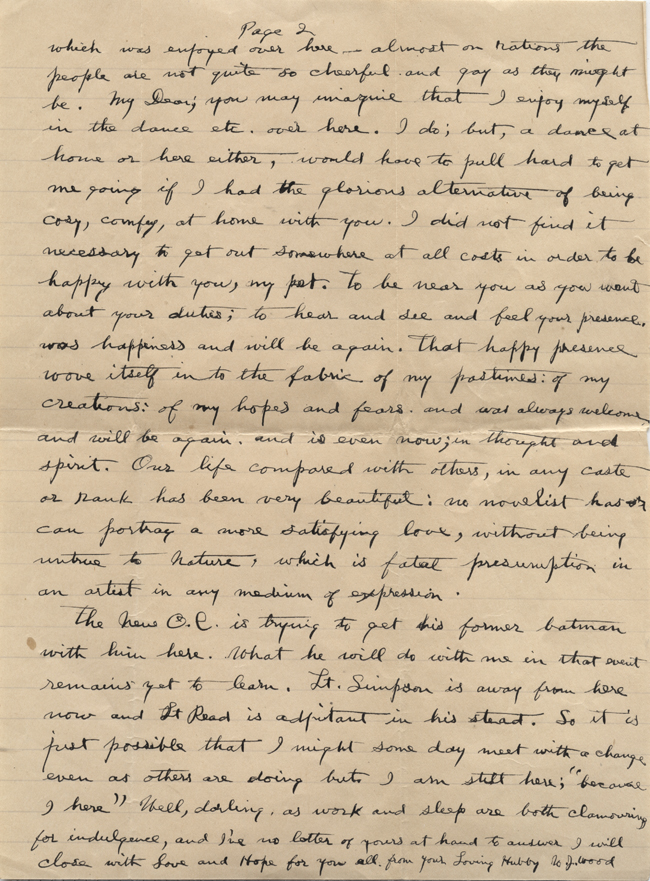 Page 2
which was enjoyed over here — almost on rations the
people are not quite so cheerful and gay as they might
be. My Dear; you may imagine that I enjoy myself
in the dance etc. over here. I do; but, a dance at
home or here either, would have to pull hard to get
me going if I had the glorious alternative of being
cosy, comfy, at home with you. I did not find it
necessary to get out somewhere at all costs in order to be
happy with you, my pet. To be near you as you went
about your duties; to hear and see and feel your presence,
was happiness and will be again. That happy presence
wove itself in to the fabric of my pastimes: of my
creations: of my hopes and fears. and was always welcome
and will be again. and is even now; in thought and
spirit. Our life compared with others, in any caste
or rank has been very beautiful: no novelist has or
can portray a more satisfying love, without being
untrue to Nature, which is fatal presumption in
an artist in any medium of expression.
The New O.C. is trying to get his former batman
with him here. What he will do with me in that event
remains yet to learn. Lt. Simpson is away from here
now and Lt Read is adjitant in his stead. So it is
just possible that I might some day meet with a change
even as others are doing but I am still here; "because
I here" Well, darling, as work and sleep are both clamouring
for indulgence, and I've no letter of yours at hand to answer I will
close with Love and Hope for you all. from your Loving Hubby W. J. Wood